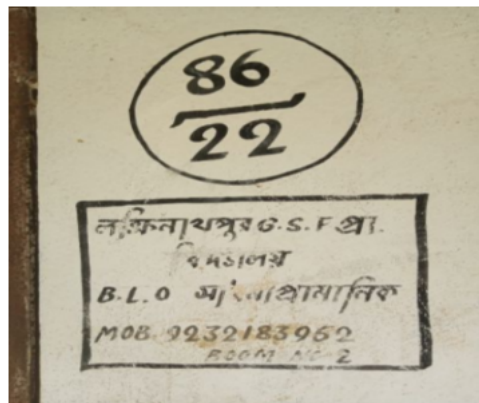 86
22
লক্ষিনাথপুর G.S.F প্রা.
বিদ্যালয়
B.L.O প্রামানিক
MOB. 9232183962
ROOM NO-2